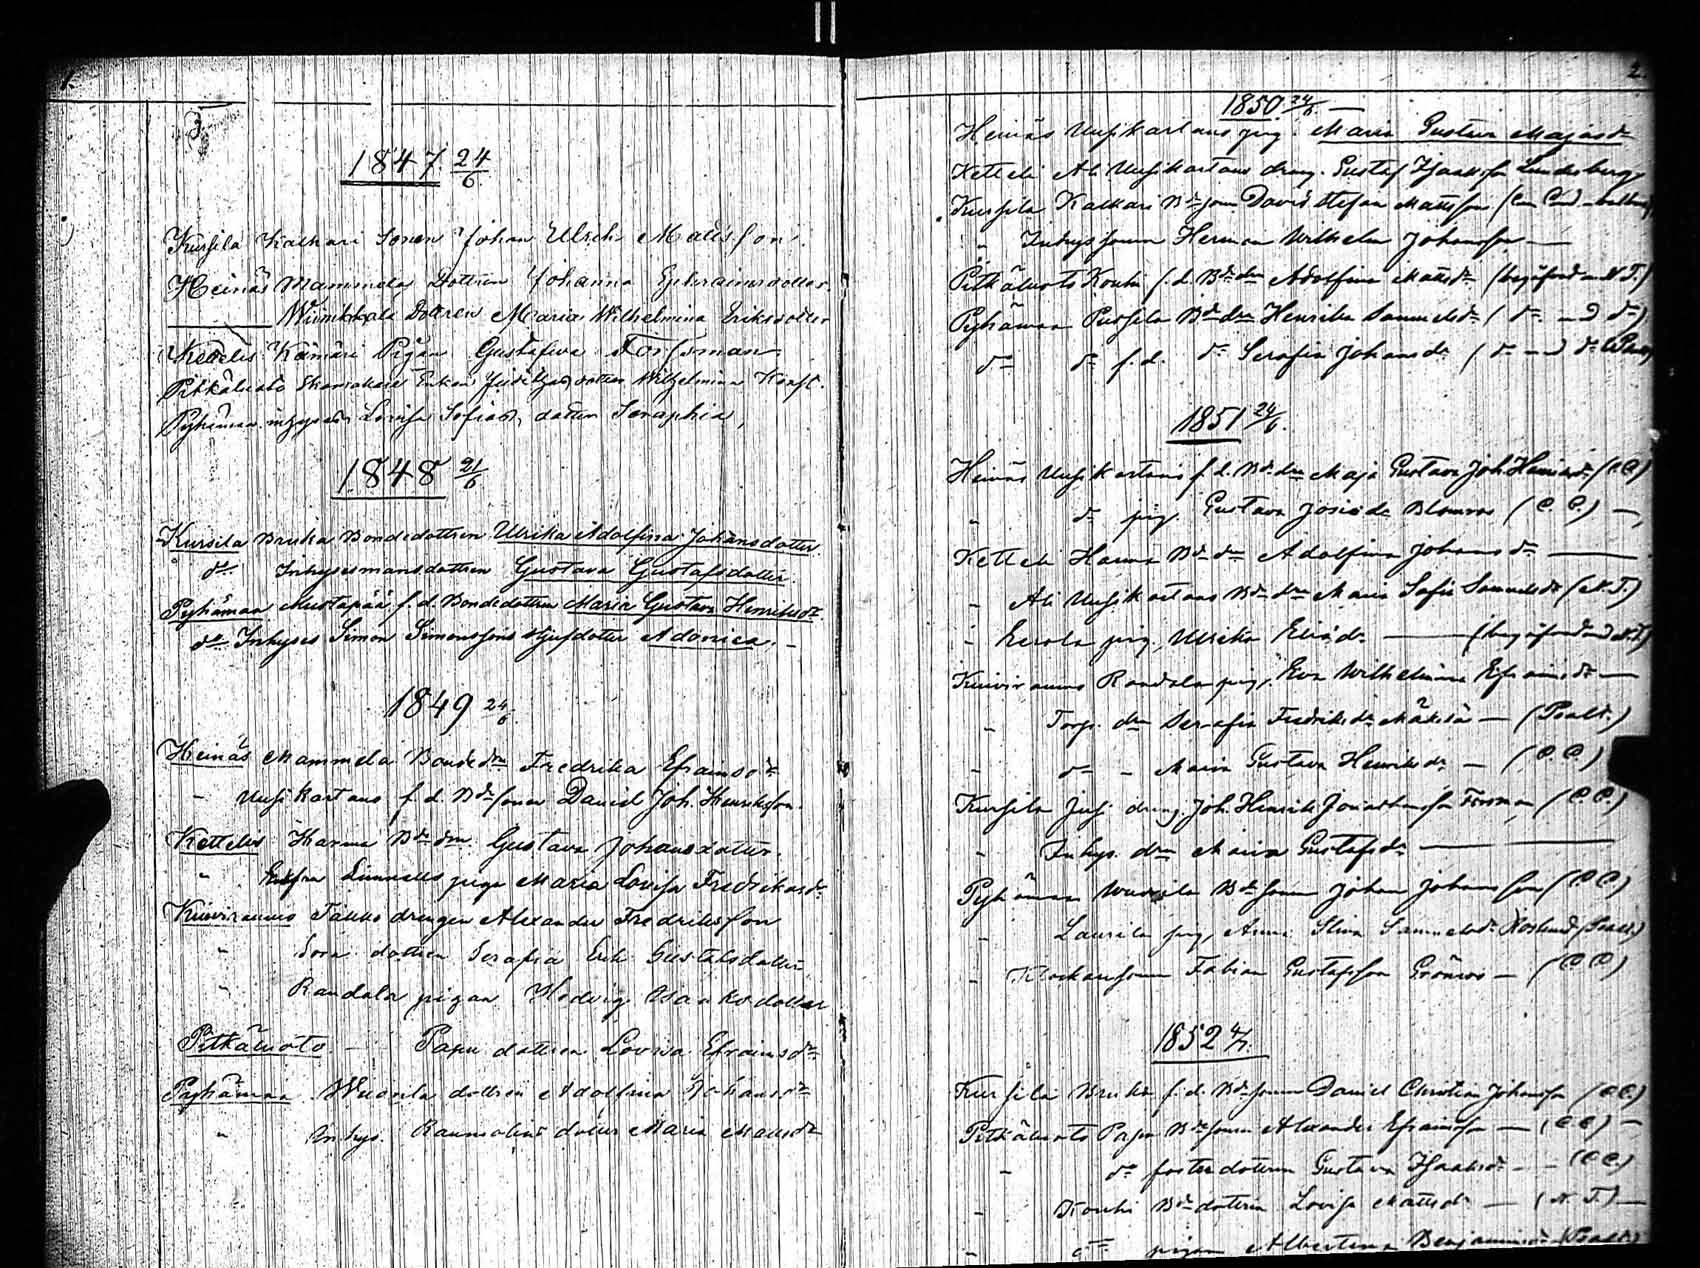 1.
1847 24/6
Kursila Kalkari Sonen Johan Ulrik Matsson
Heinäs Mammela Dottren Johanna Ephraimsdotter
Dottren Maria Wilhelmina Eriksdotter
Kettelis Kämäri Pigan Gustafwa Forssman
Pitkäluoto Enkan dotter Wilhelmina
Pyhämaa Lovisa Sofias dotter Seraphia,
1848 21/6
Kursila Bruka Bondedottren Ulrika Adolfina Johansdotter
do Inhysesmansdottren Gustava Gustafsdotter
Pyhämaa Mustapää f.d. Bondedottren Maria Gustava Henriksdr
do Inhyses Simon Simonssons styfdotter Adonica. -
1849 24/6
Heinäs Mammela Bondedrn Fredrika Efraimsdr
" Uusikartano f.d. Bdesonen David Joh. Henriksson
Kettelis Hannu Bdedrn Gustava Johansdotter
" pigan Maria Lovisa Fredriksdr
Kuiviraumo drengen Alexander Fredriksson
" Sora dottren Serafia Erik Gustafsdotter
" Randala pigan Hedvig Isaksdotter
Pitkäluoto - Papu dottren Lovisa Efraimsdr
Pyhämaa Wuorila dottren Adolfina Johansdr
" Inhys. dotter Maria Mattsdr
2.
1850 24/6 —
Heinäs Uusikartano pig. Maria Gustava Majasdr
Ketteli Ali Uusikartano dräng. Gustaf Isaksson Lundsberg
Kursila Kalkari Bdeson David Stefan Mattsson
" Inhyssonen Herman Wilhelm Johansson —
Pitkäluoto Kouhi f.d. Bdedrn Adolfina Mattsdr (begåfvad N.T.)
Pyhämaa Pursila Bdedrn Henrika Samuelsdr (do - do)
do do f.d. do Serafia Johansdr
1851 24/6
Heinäs Uusikartano f.d. Bdedrn Maja Gustava Joh. Henriksdr (C.C.)
" do pig. Gustava Josiedr Blomroos (C.C.) —
Ketteli Hannu Bdedr Adolfina Johansdr —
" Ali Uusikartano Bdedrn Maria Sofia Samuelsdr (N.T.)
" Eerola pig. Ulrika Eliedr — (begåfvad N.T.)
Kuiviraumo Randala pig. Eva Wilhelmina Efraimsdr —
" Torp. drn Serafia Fredriksdr Mäkilä — (Psalt.)
" do - Maria Gustava Henriksdr — (C.C.)
Kursila Jusi dräng Joh. Henrik Jonathansson Forsman (C.C.)
" Inhys. drn Maria Gustafsdr —
Pyhämaa Wuorila Bdesonen Johan Johansson (C.C.)
" Laurila pig. Anna Stina Samuelsdr Roslund (Psalt.)
" Klockaresonen Fabian Gustafsson Grönroos — (C.C.)
1852 4/7
Kursila Bruka f.d. Bdesonen Daniel Christian Johansson (C.C.)
Pitkäluoto Papu Bdesonen Alexander Efraimsson — (C.C.) —
" do fosterdottren Gustava Isaksdr — (C.C.)
" Kouhi Bdedottren Lovisa Mattsdr — (N.T.) —
" do pigan Albertina Benjaminsdr (Psalt.)